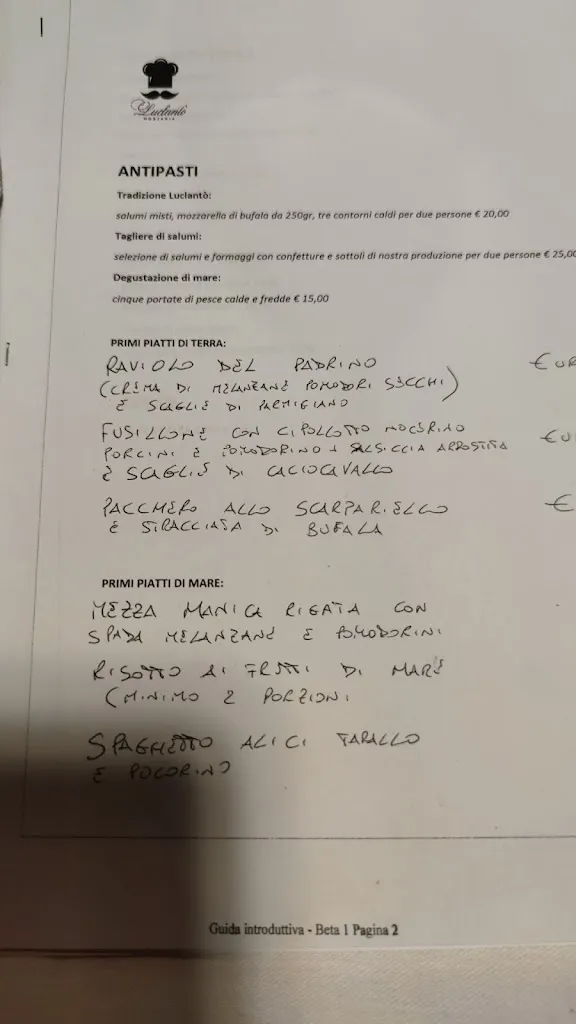 Luclantò
ANTIPASTI
Tradizione Luclantò:
salumi misti, mozzarella di bufala da 250gr, tre contorni caldi per due persone € 20,00
Tagliere di salumi:
selezione di salumi e formaggi con confetture e sottoli di nostra produzione per due persone € 25,00
Degustazione di mare:
cinque portate di pesce calde e fredde € 15,00
PRIMI PIATTI DI TERRA:
RAVIOLO DEL PADRINO € EUR
(CREMA DI MELANZANE POMODORI SECCHI)
E SCAGLIE DI PARMIGIANO
FUSILLONE CON CIPOLLOTTO NOCERINO €U
PORCINI E POMODORINO + SALSICCIA ARROSTITA
E SCAGLIE DI CACIOCAVALLO
PACCHERO ALLO SCARPARIELLO €
E STRACCIATA DI BUFALA
PRIMI PIATTI DI MARE:
MEZZA MANICA RIGATA CON
SPADA MELANZANE E POMODORINI
RISOTTO AI FRUTTI DI MARE
(MINIMO 2 PORZIONI
SPAGHETTO ALICI TARALLO
E PECORINO
Guida introduttiva - Beta 1 Pagina 2